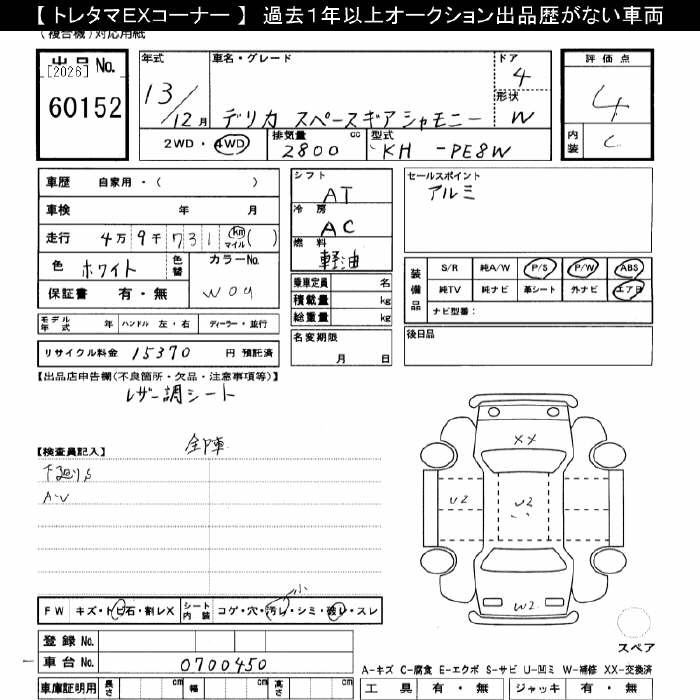 【 トレタマＥＸコーナー 】 過去１年以上オークション出品歴がない車両
(複合機)対応用紙
出品 No.
[2026]
60152
年式
13/12月
車名・グレード
デリカ スペースギアシャモニー
ドア
4
形状
W
2WD・4WD
排気量 cc
2800
型式
KH -PE8W
評価点
4
内装
C
車歴 自家用・( )
車検 年 月
走行 4万9千731 km マイル ( )
色 ホワイト 色替
カラーNo.
W09
保証書 有・無
モデル年式 年 ハンドル 左・右 ディーラー・並行
リサイクル料金 15370 円 預託済
シフト
AT
冷房
AC
燃料
軽油
乗車定員 名
積載量 kg
総重量 kg
名変期限
月 日
セールスポイント
アルミ
装備品
S/R 純A/W P/S P/W ABS
純TV 純ナビ 革シート 外ナビ エアB
ナビ型番：
後日品
【出品店申告欄(不良箇所・欠品・注意事項等)】
レザー調シート
【検査員記入】
下廻りS
A-V
XX
U2
U2
W2
FW キズ・トビ石・割レX
シート内装 コゲ・穴・汚レ・シミ・破レ・スレ
小
スペア
登録 No.
車台 No. 0700450
車庫証明用 長さ cm 幅 cm 高さ cm
A-キズ C-腐食 E-エクボ S-サビ U-凹ミ W-補修 XX-交換済
工具 有・無 ジャッキ 有・無